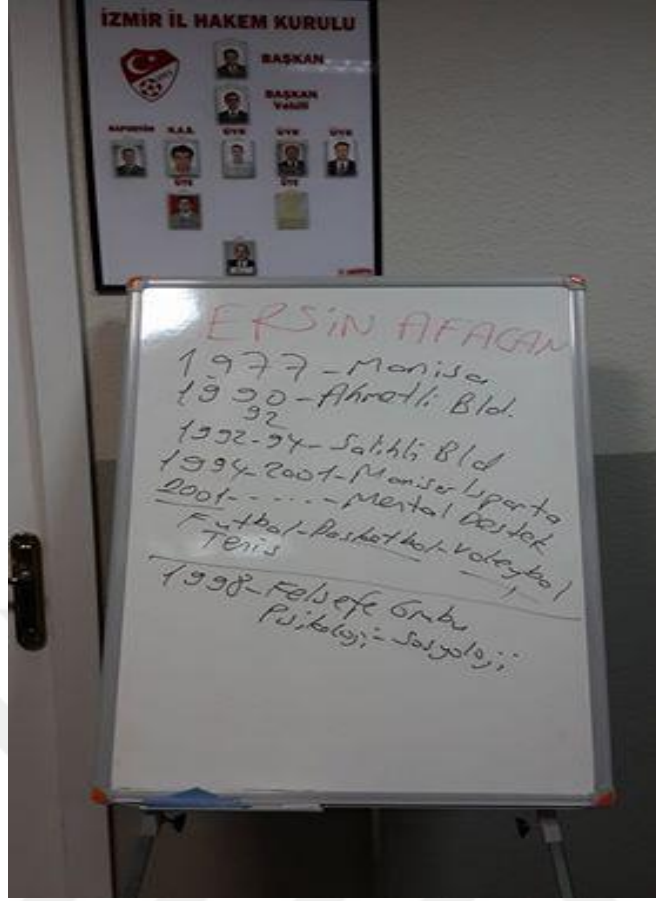 İZMİR İL HAKEM KURULU
BAŞKAN
BAŞKAN
Vekili
ÜYE ÜYE ÜYE
ÜYE ÜYE
ERSiN AFACAN
1977-Manisa
1990-Ahmetli Bld.
92
1992-94-Salihli Bld
1994-2001-Manisa Isparta
2001-.....-Mental Destek
Futbol-Basketbol-Voleybol
Tenis
1998-Felsefe Grubu
Psikoloji-Sosyoloji